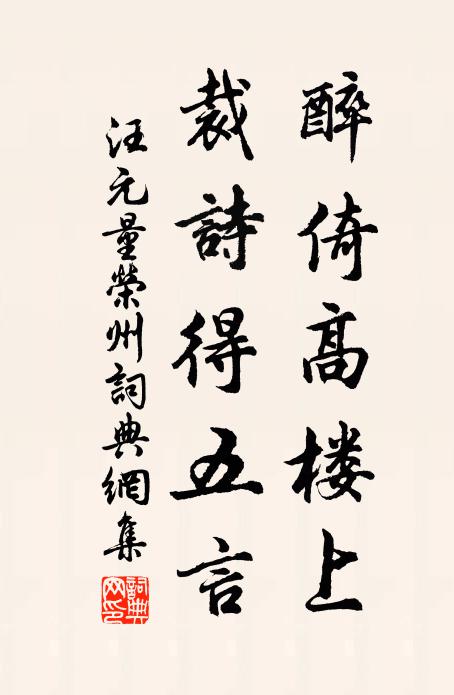 醉倚高楼上
裁詩得五言
汪元量榮州詞典網集
詞典网印